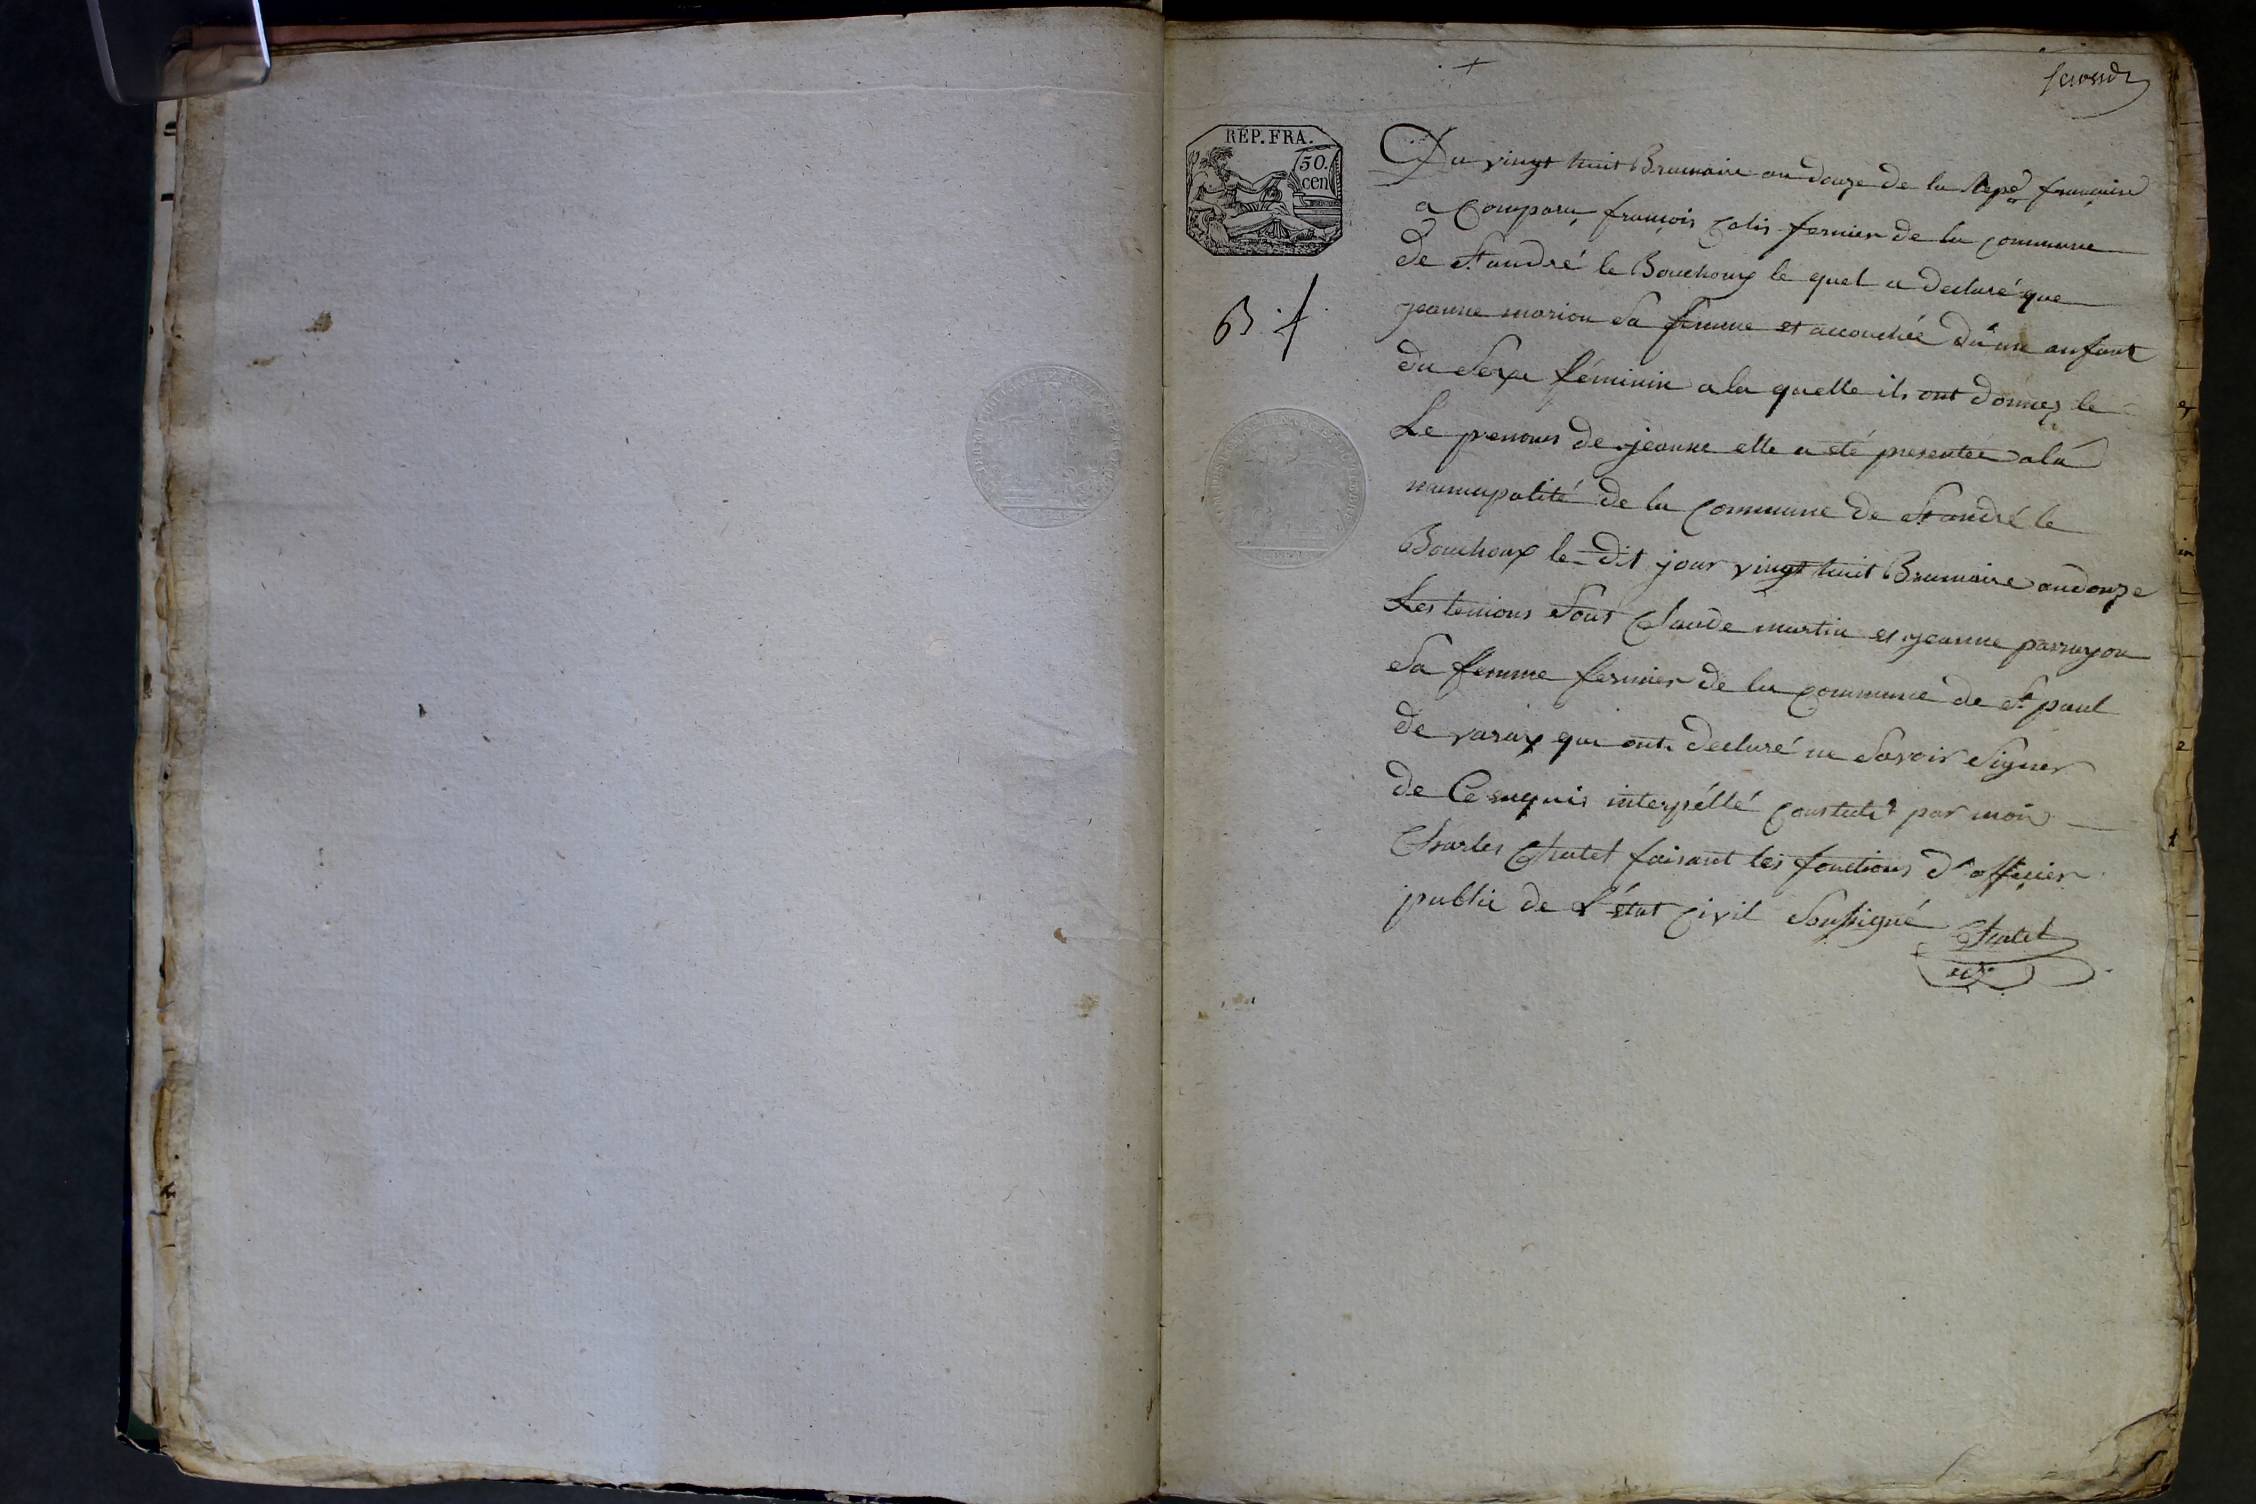 second
RÉP. FRA.
50.
cen
Du vingt huit Brumaire an douze de la Repe francaise
a comparu françois Colis fermier de la commune
de St andré le Bouchoux le quel a declaré que
jeanne marion sa femme et accouchée du'une anfant
du Sexe féminin a la quelle ils ont donnez le
Le prenoms de jeanne elle a été presentée a la
municipalité de la commune de St andré le
Bouchoux le dit jour vingt huit Brumaire an douze
Les temions Sont Claude martin et jeanne
Sa femme fermier de la commune de St paul
de varax qui ont declaré ne Savoir Signer
de Ce enquis interpéllé par moi
Charles Chatel faisant les fonctions d'officier
public de L'état civil Soussigné Chatel